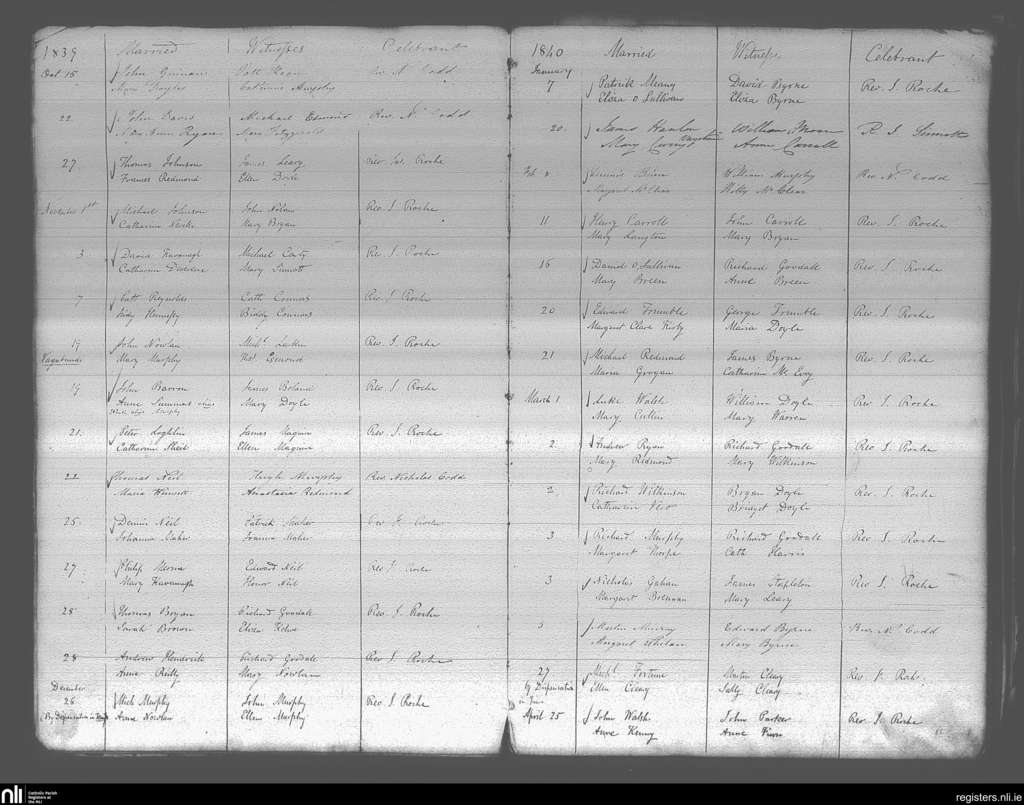 1839 Married Witnesses Celebrant
Oct 15 John Wall Rev N Codd
Catherine Murphy
22 John David Michael Edmond Rev. N. Codd
Ann Ryan Mary Fitzgerald
27 Thomas Johnson James Leary Rev. Roche
Frances Redmond Ellen Doyle
1st Michael Johnson John Nolan Rev J. Roche
Catharine Mary Bryan
3 David Kavanagh Michael Carty Rev. J. Roche
Catharine Mary Sinnott
7 Patt Reynolds Cath Connors Rev J Roche
Judy Hennessy Biddy Connors
19 John Nowlan Mich. Larkin Rev. J. Roche
Vagabunde Mary Murphy Thos.
19 John Barron James Boland Rev. J. Roche
Anne alias Mary Doyle
alias Murphy
21. Peter Loghlin James Maguire Rev. J. Roche
Catharine Ellen Maguire
22 Thomas Neil Hugh Murphy Rev. Nicholas Codd
Maria Anastasia Redmond
25. Dennis Neil Patrick Maher Rev J. Roche
Johanna Maher Joanna Maher
27 Philip Edward Neil Rev J. Roche
Mary Kavanagh Honor Neil
28 Thomas Bryan Richard Goodall Rev. J. Roche
Sarah Brown Eliza
28 Andrew Hendrick Richard Goodall Rev J. Roche
Anne Reilly Mary Nowlan
December
26 Mich Murphy John Murphy Rev. J. Roche
(By Dispensation in Anne Nowlan Ellen Murphy
1840 Married Witnesses Celebrant
January
7 Patrick Meany David Byrne Rev. J. Roche
Eliza O Sullivan Eliza Byrne
20. James Hanlon William Moore R J. Sinnott
Mary Anne Carroll
Feb 2 Dennis Brien William Murphy Rev. N. Codd
Margaret Mc Clean Kitty Mc Clean
11 Henry Carroll John Carroll Rev. J. Roche
Mary Langton Mary Bryan
16 Daniel O Sullivan Richard Goodall Rev. J. Roche
Mary Breen Anne Breen
20 Edward Trumble George Trumble Rev. J. Roche
Margaret Clare Kirby Maria Doyle
21 Michael Redmond James Byrne Rev. J. Roche
Maria Grogan Catharine Mc Evoy
March 1 Luke Walsh William Doyle Rev J. Roche
Mary Cullen Mary Warren
2. Andrew Ryan Richard Goodall Rev J. Roche
Mary Redmond Mary Wilkinson
2 Richard Wilkinson Bryan Doyle Rev. J. Roche
Catharine Bridget Doyle
3 Richard Murphy Richard Goodall Rev J. Roche
Margaret Cath Harris
3 Nicholas Gahan James Stapleton Rev J. Roche
Margaret Brennan Mary Leary
3 Martin Murray Edward Byrne Rev. N. Codd
Margaret Whelan Mary Byrne
27 Mich. Fortune Martin Cleary Rev. J. Roche
by Dispensation Ellen Sally Cleary
April 25 John Walsh John Parker Rev J. Roche
Anne Kenny Anne
nli Catholic Parish
Registers at
the NLI
registers.nli.ie